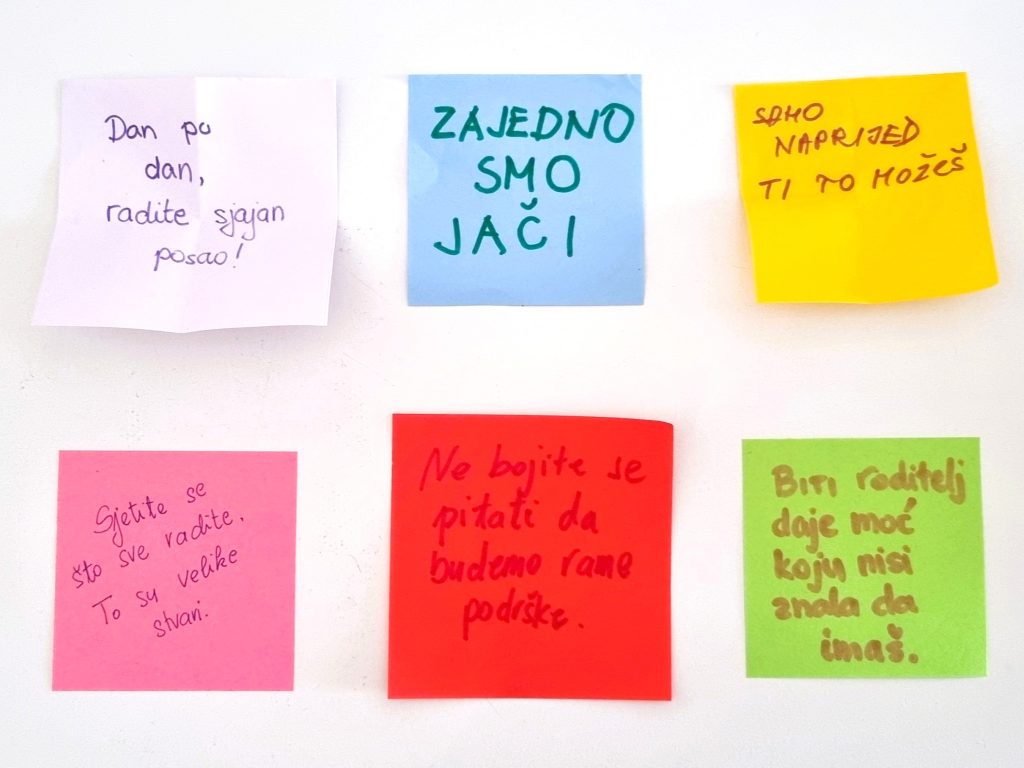 Dan po
dan,
radite sjajan
posao!
ZAJEDNO
SMO
JAČI
SAMO
NAPRIJED
TI TO MOŽEŠ
Sjetite se
što sve radite.
To su velike
stvari.
Ne bojite se
pitati da
budemo rame
podrške.
Biti roditelj
daje moć
koju nisi
znala da
imaš.